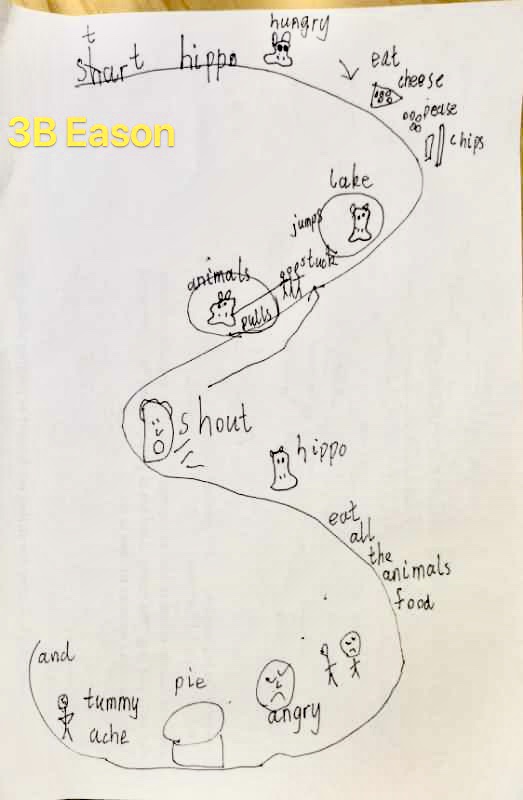 hungry
t
shart hippo
eat
cheese
pease
chips
3B Eason
lake
jumps
stuck
animals
pulls
shout
hippo
eat
all
the
animals
food
and
tummy
ache
pie
angry